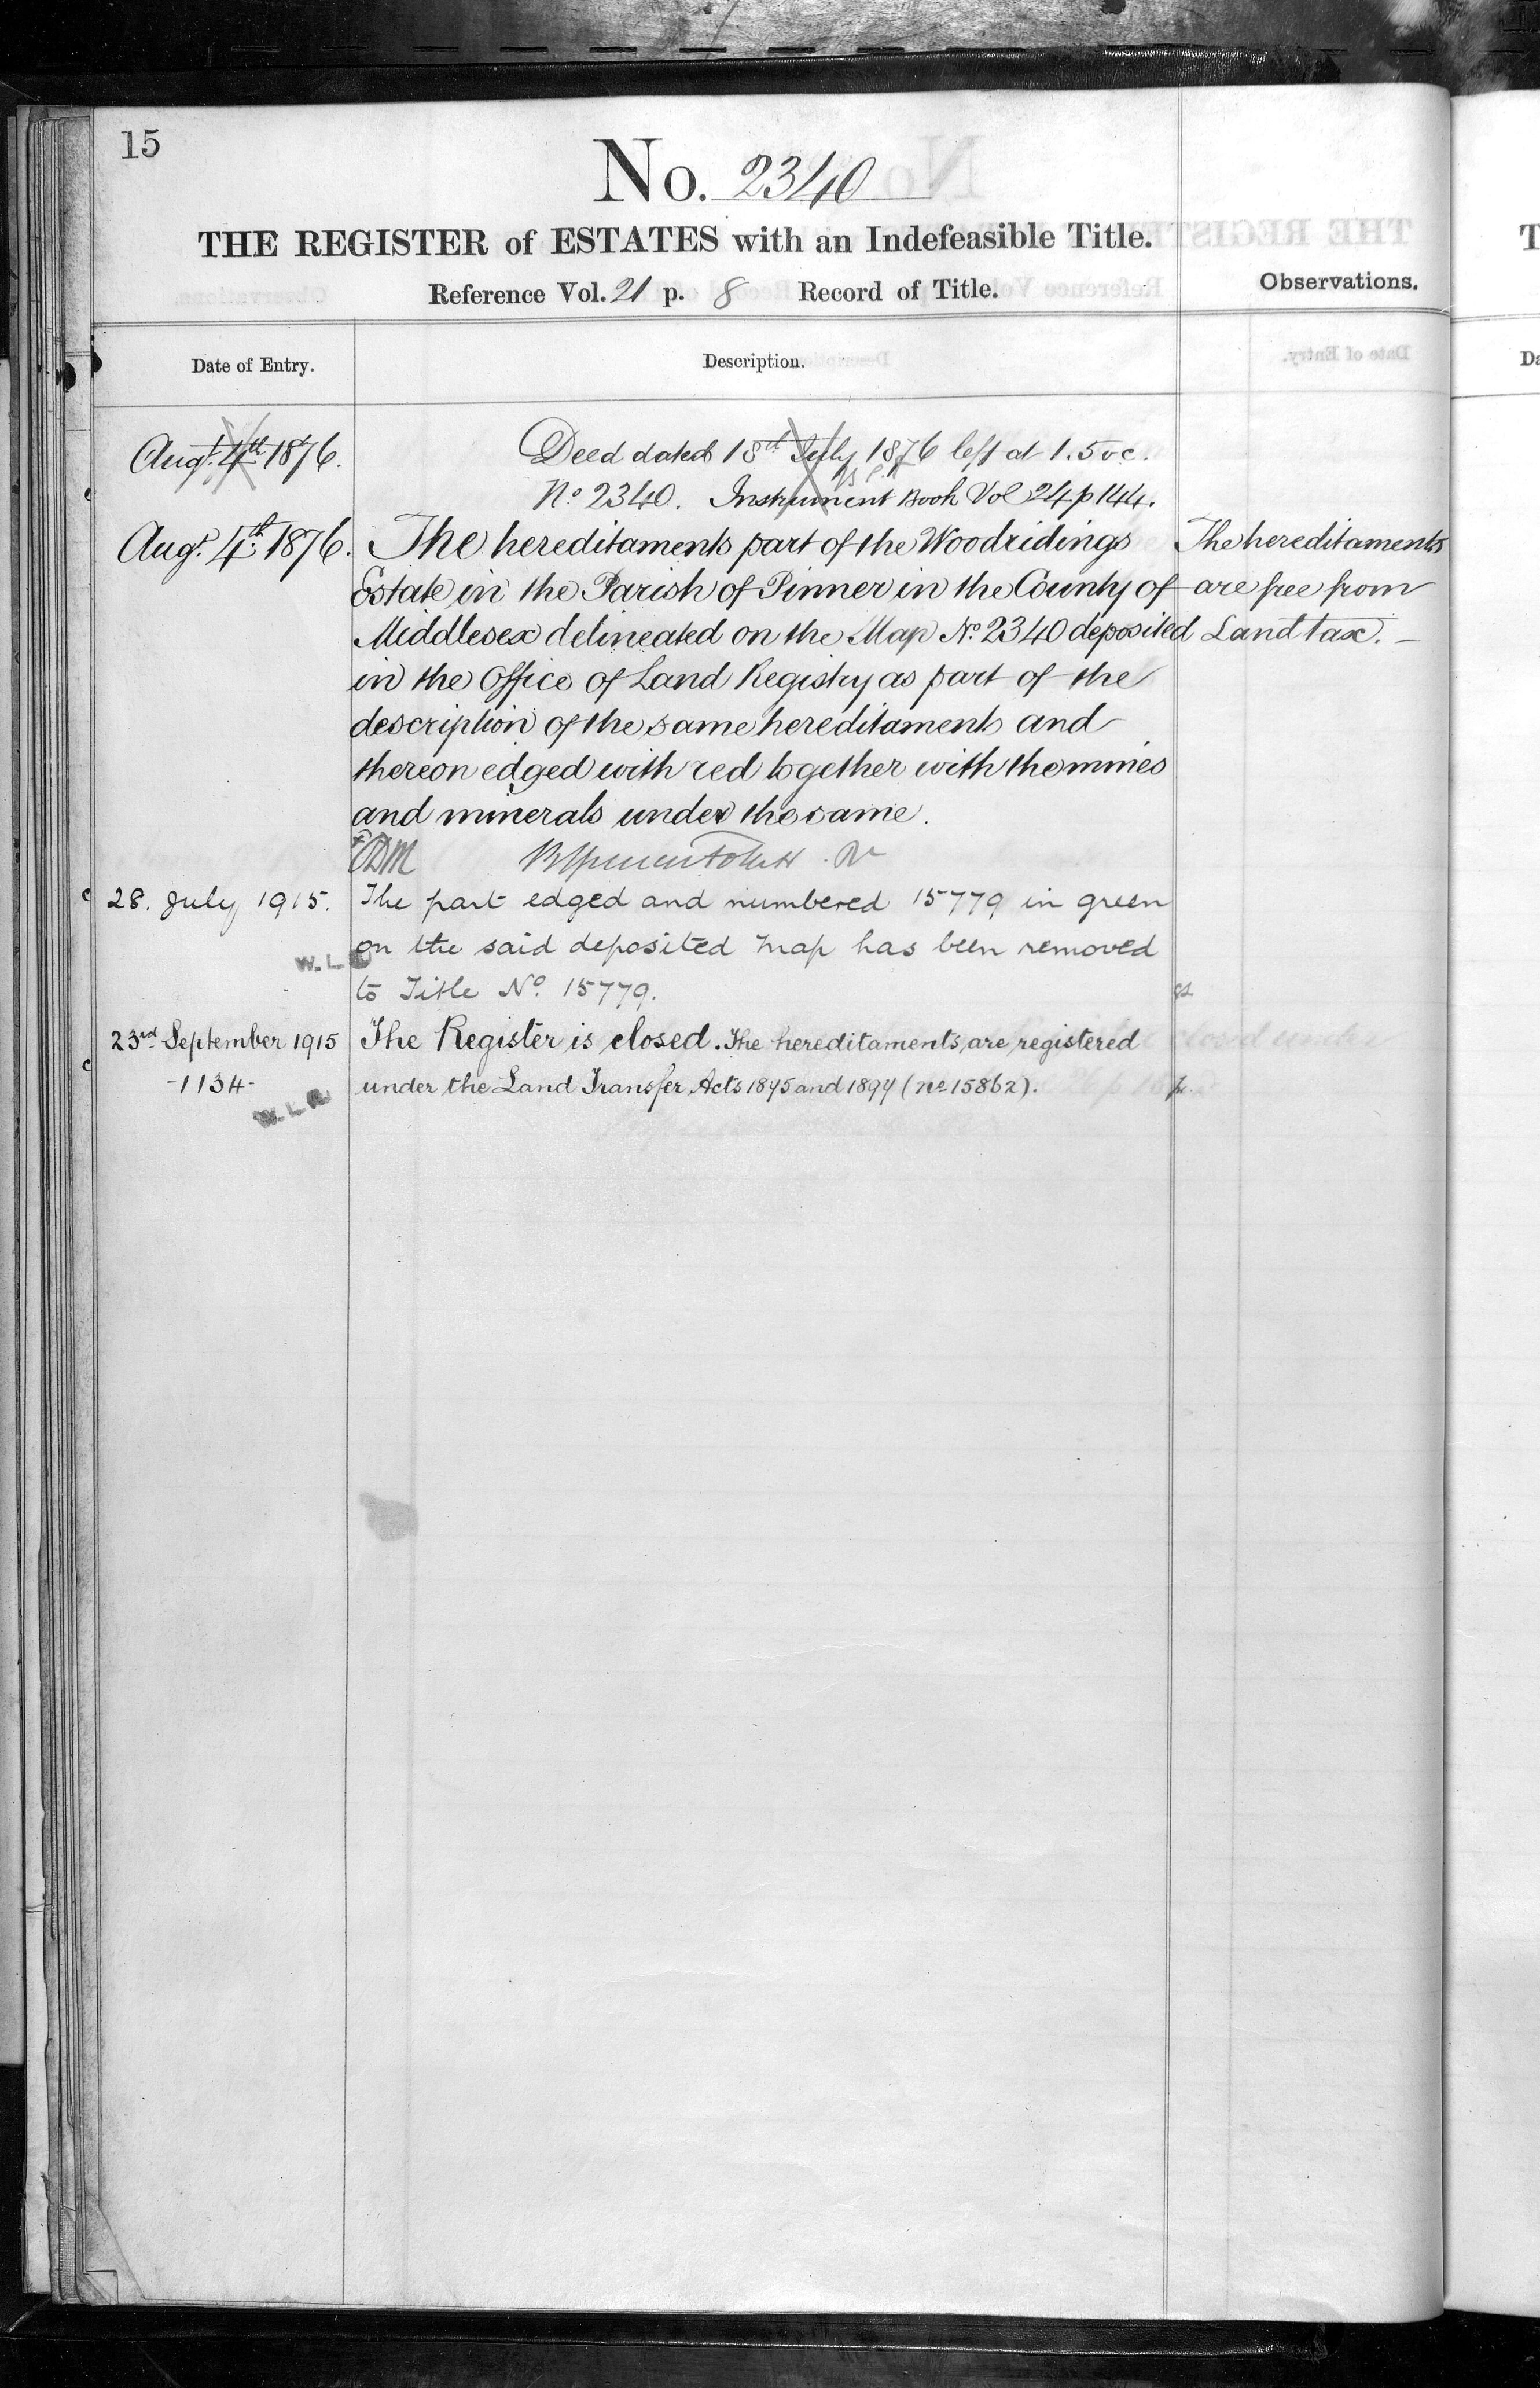 15
No. 2340
THE REGISTER of ESTATES with an Indefeasible Title.
Reference Vol. 21 p. 8 Record of Title.
Observations.
Date of Entry.
Description.
Augt. 4th 1876.
Deed dated 18th July 1876 left at 1.5 oc.
No 2340. Instrument Book Vol 24 p 144.
Augt. 4th 1876.
The hereditaments part of the Woodridings
Estate in the Parish of Pinner in the County of
Middlesex delineated on the Map No. 2340 deposited
in the Office of Land Registry as part of the
description of the same hereditaments and
thereon edged with red together with the mines
and minerals under the same.
The hereditaments
are free from
Land tax. —
28. July 1915.
The part edged and numbered 15779 in green
on the said deposited map has been removed
to Title No. 15779.
W.L.R
23rd September 1915
-1134-
The Register is closed. The hereditaments are registered
under the Land Transfer Acts 1875 and 1897 (No 15862).
W.L.R